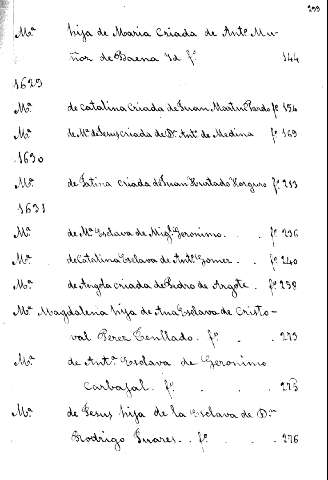 299
Mª hija de Maria Criada de Antº Mu-
ñoz de Baena Id fº 144
1629
Mª de Catalina Criada de Juan Martin Pardo fº 154
Mª de Mª de Jesus criada de Dn Antº de Medina fº 169
1630
Mª de criada de Juan Hurtado fº 213
1631
Mª de Mª Esclava de Migl Geronimo . . fº 236
Mª de Catalina Esclava de Antº Gomez . . fº 240
Mª de Angela criada de Pedro de Argote . fº 258
Mª Magdalena hija de Ana Esclava de Cristo-
val Perez Tenllado . fº . . 273
Mª de Antª Esclava de Geronimo
Carbajal . fº . . . . 273
Mª de Jesus hija de la Esclava de Dn
Rodrigo Suares . . fº . . . 276